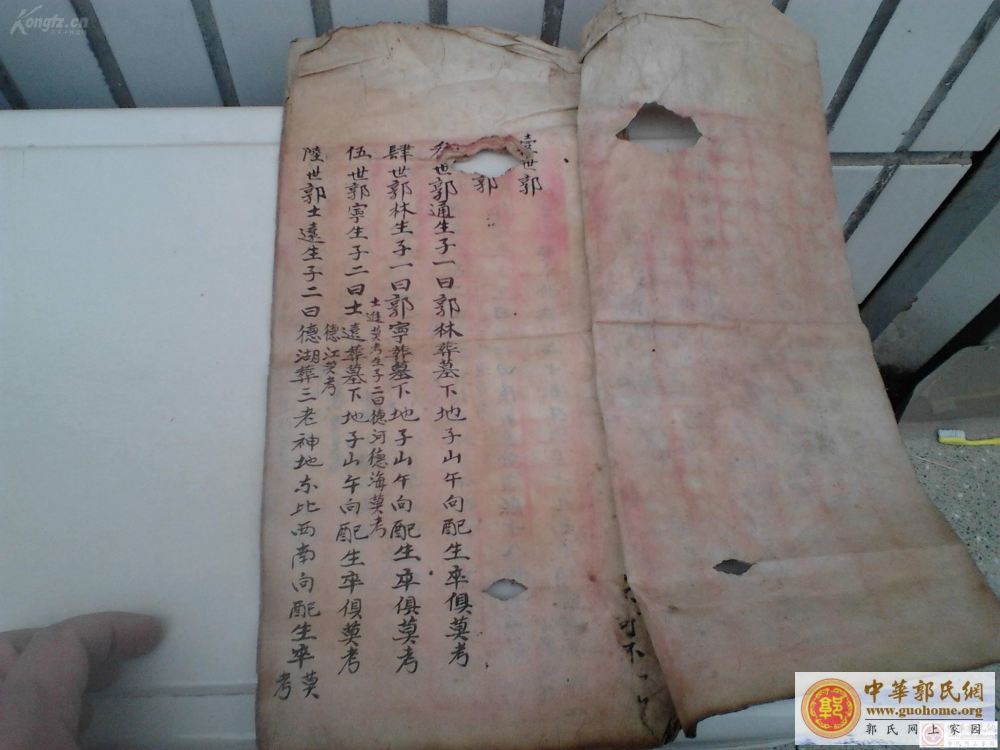 壹世郭
郭
世郭通生子一曰郭林葬墓下地子山午向配生卒俱莫考
肆世郭林生子一曰郭寧葬墓下地子山午向配生卒俱莫考
士遊莫考生子二曰德河德海莫考
伍世郭寧生子二曰士遠葬墓下地子山午向配生卒俱莫考
德江莫考
陸世郭士遠生子二曰德湖葬三老神地东比西南向配生卒莫考
可不一
Kongfz.cn
中華郭氏網
www.guohome.org
郭氏网上家园